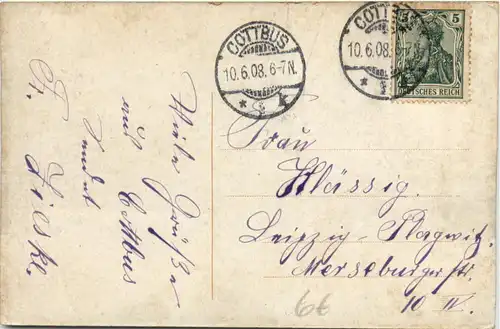 COTTBUS
10.6.08. 6-7N.
COTTBUS
10.6.08. 6-7N.
5
DEUTSCHES REICH
Viele Grüße
aus Cottbus
sendet
Fr. Lieske.
Frau
Klässig.
Leipzig-Plagwitz
Merseburgerstr.
10 IV.
66